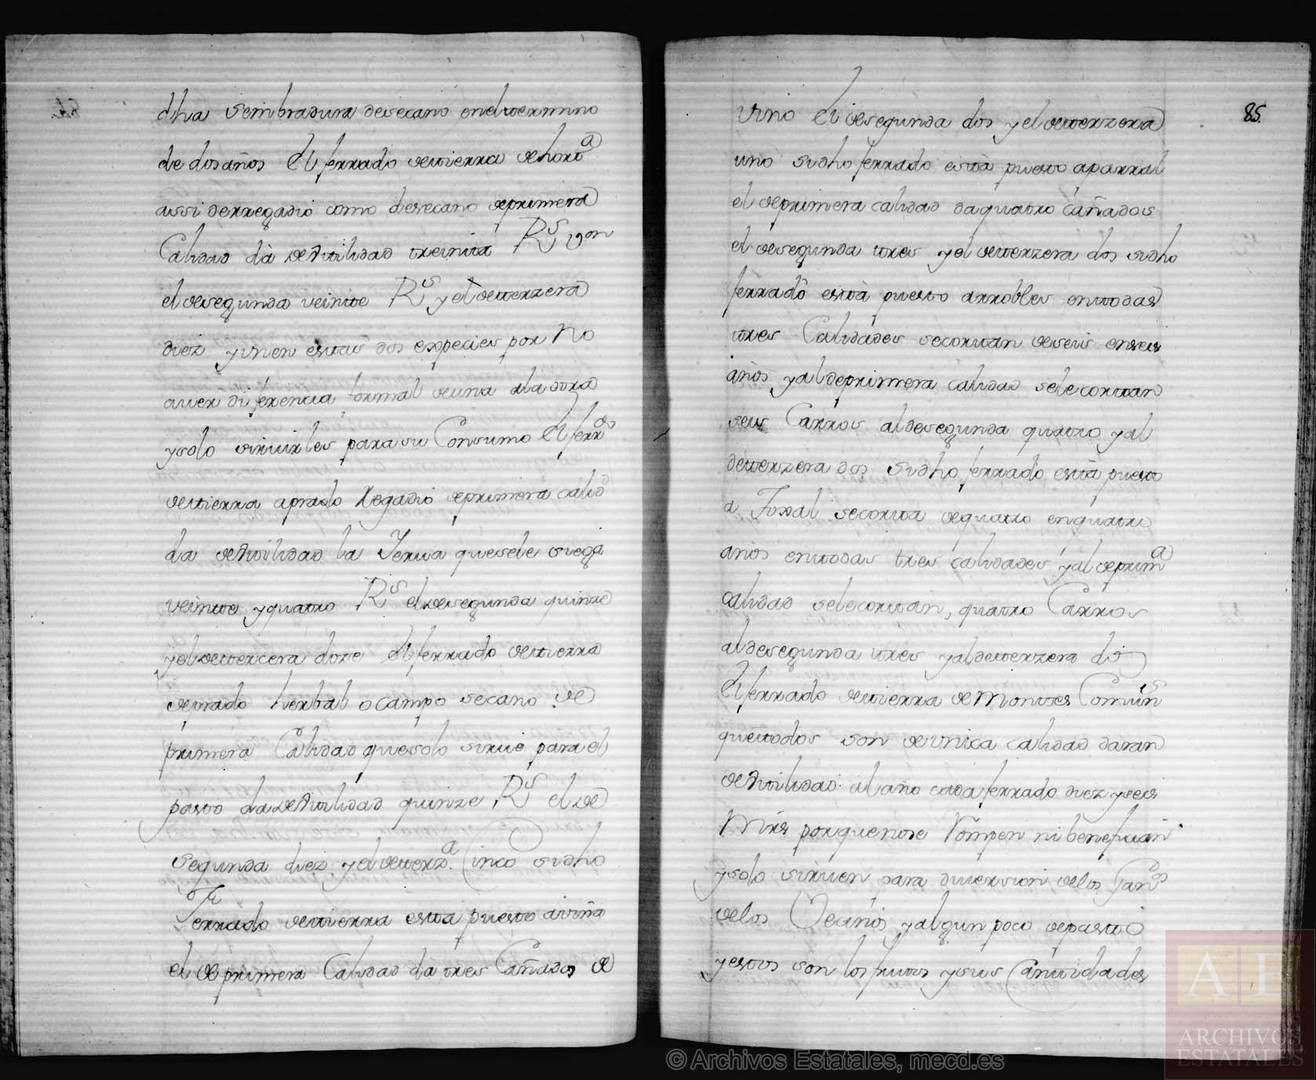 dha Sembradura desecano eneltermino
de dos años El ferrado detierra dehort.a
assi derregadio como desecano deprimera
Calidad dà deutilidad treinta R.s von
el desegunda veinte R.s y el deterzera
diez y vnen estas dos expecies por No
aver diferencia formal deuna ala otra
ysolo siruirles parasu Consumo El ferr.do
detierra aprado Regadio deprimera calid.d
da deutilidad la Yerua quesele siega
veinte yquatro R.s eldesegunda quinze
yel detercera doze El ferrado detierra
deprado herbal o campo secano de
primera Calidad quesolo sirue para el
pasto dadeutilidad quinze R.s el de
segunda diez yel deterz.a Cinco sudho
ferrado detierra esta puesto aviña
el de primera Calidad da tres Cañados de
85
vino El desegunda dos yel deterzera
uno sudho ferrado està puesto aparral
el deprimera calidad daquatro Cañados
el desegunda tres yel deterzera dos sudho
ferrado està puesto arrobles entodas
tres Calidades secortan deseis enseis
años yaldeprimera calidad selecortan
seis Carros aldesegunda quatro yal
deterzera dos sudho ferrado està puesto
a Toxal secorta dequatro enquatro
años entodas tres calidades yaldeprim.a
calidad selecortan, quatro Carros
aldesegunda tres yaldeterzera dos
El ferrado detierra de Montes Comun.s
quetodos son devnica calidad daran
deutilidad al año cada ferrado diez yseis
Mrs porquenose Rompen ni benefician
ysolo siruen para diuersion delos Gan.dos
delos Vecinos yalgun poco depasto
yestos son los frutos ysus Cantidades
© Archivos Estatales, mecd.es
AE
ARCHIVOS
ESTATALES